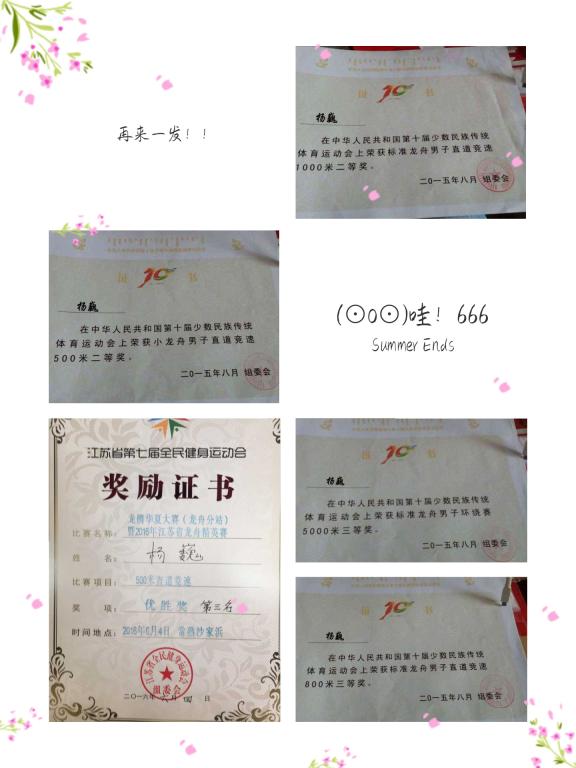 再来一发！！
杨巍
在中华人民共和国第十届少数民族传统
体育运动会上荣获标准龙舟男子直道竞速
1000米二等奖。
二○一五年八月 组委会
杨巍
在中华人民共和国第十届少数民族传统
体育运动会上荣获小龙舟男子直道竞速
500米二等奖。
二○一五年八月 组委会
(⊙o⊙)哇！666
Summer Ends
江苏省第七届全民健身运动会
奖励证书
比赛名称：
龙腾华夏大赛（龙舟分站）
暨2016年江苏省龙舟精英赛
姓 名： 杨巍
比赛项目： 500米直道竞速
奖 项： 优胜奖 第三名
时间地点：2016年6月4日 常熟沙家浜
江苏省全民健身运动会
组委会
二○一六年六月四日
杨巍
在中华人民共和国第十届少数民族传统
体育运动会上荣获标准龙舟男子环绕赛
5000米三等奖。
二○一五年八月 组委会
杨巍
在中华人民共和国第十届少数民族传统
体育运动会上荣获标准龙舟男子直道竞速
800米三等奖。
二○一五年八月 组委会